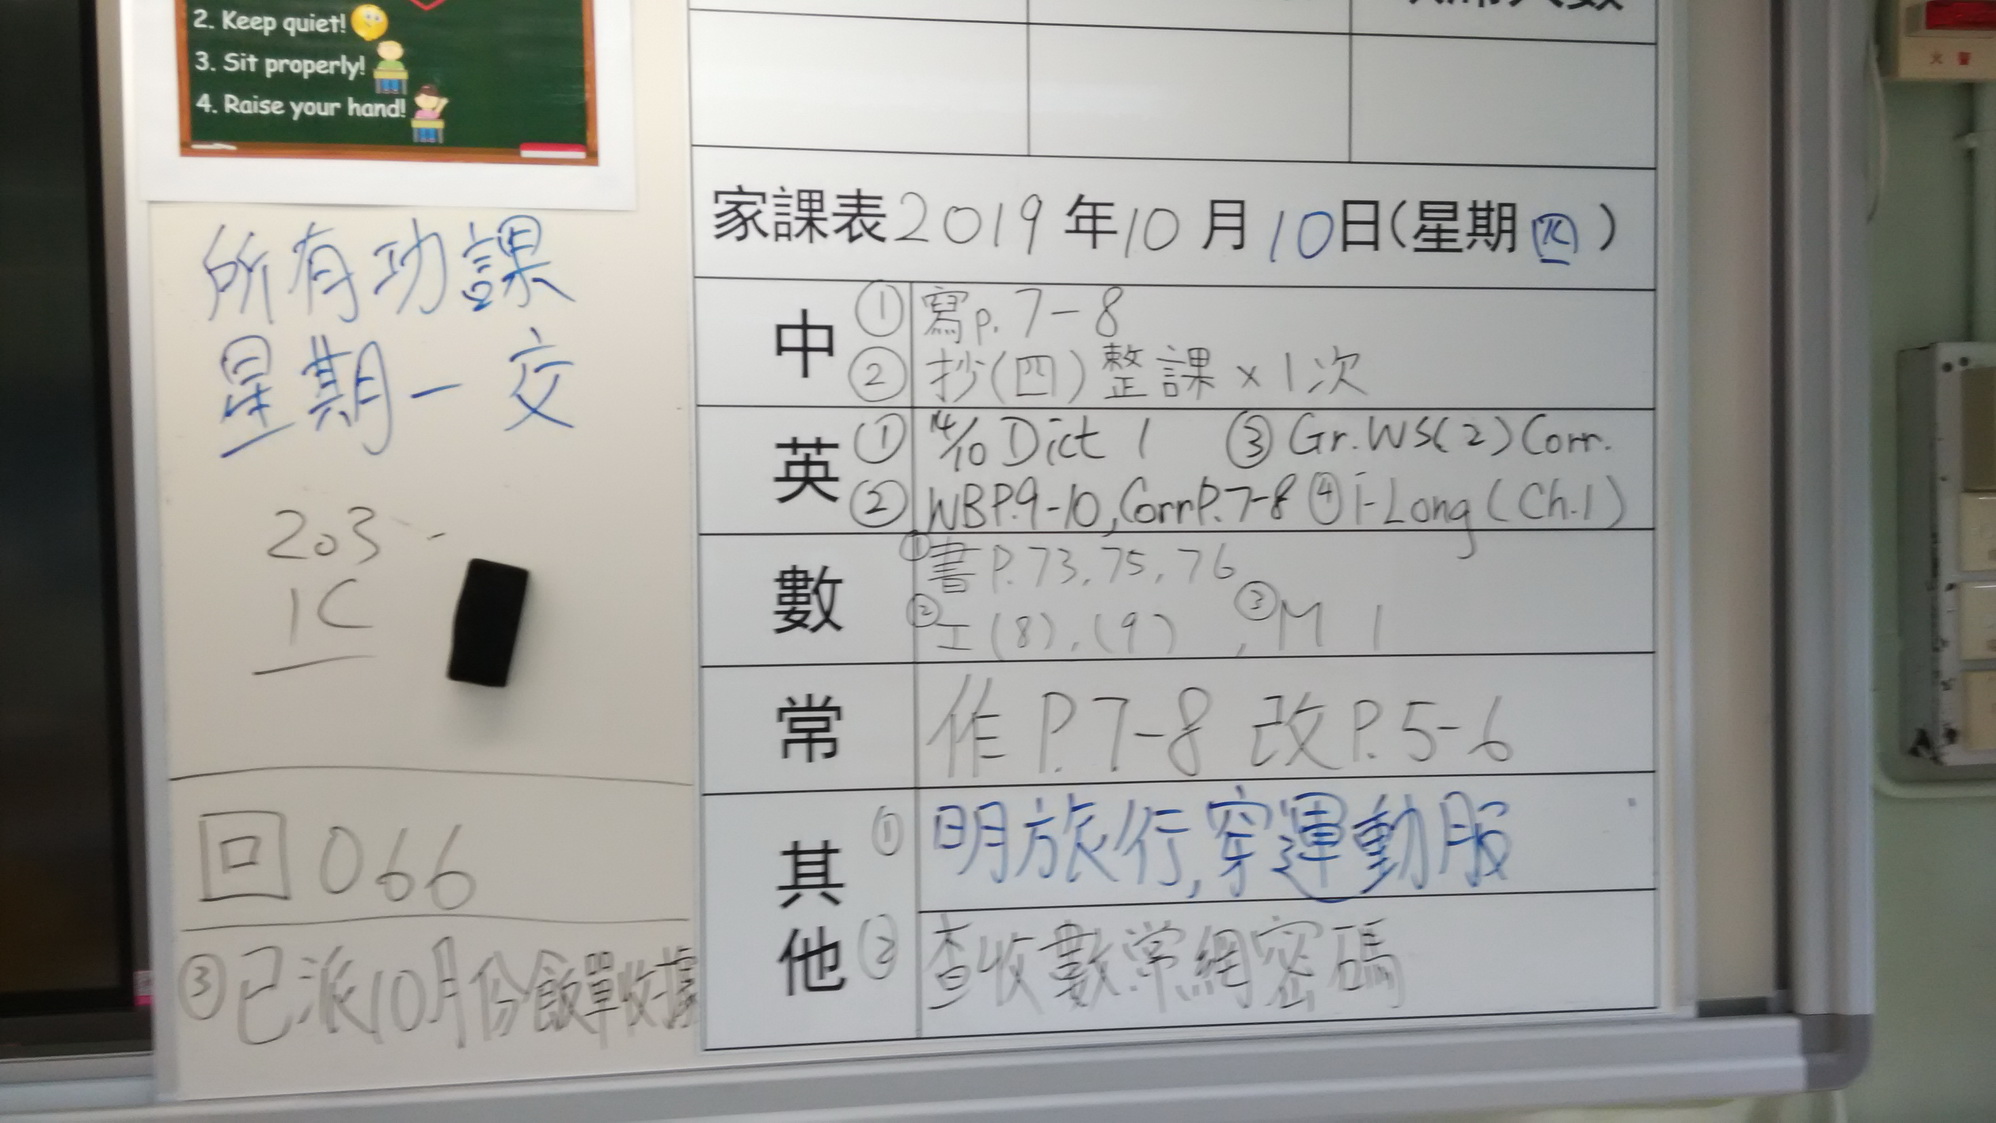 2. Keep quiet!
3. Sit properly!
4. Raise your hand!
所有功課
星期一交
203
1C
回 066
③已派10月份飯單收據
家課表2019年10月10日(星期四)
中
①寫p.7-8
②抄(四)整課×1次
英
①14/10 Dict 1 ③Gr.WS(2)Corr.
②WBP.9-10,CorrP.7-8 ④i-Long(Ch.1)
數
①書P.73,75,76
②工(8),(9),③M 1
常
作P.7-8 改P.5-6
其他
①明旅行,穿運動服
②查收數常網密碼
火警